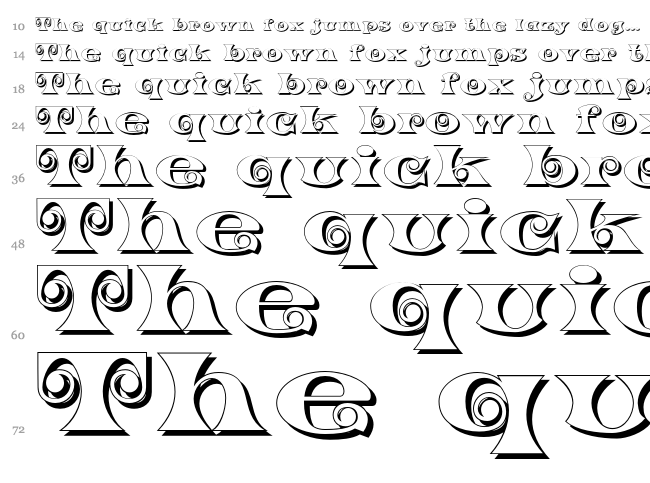 10 The quick brown fox jumps over the lazy dog...
14 The quick brown fox jumps over t
18 The quick brown fox jump
24 The quick brown fo
36 The quick bro
48 The quick
60 The quic
72 The qu